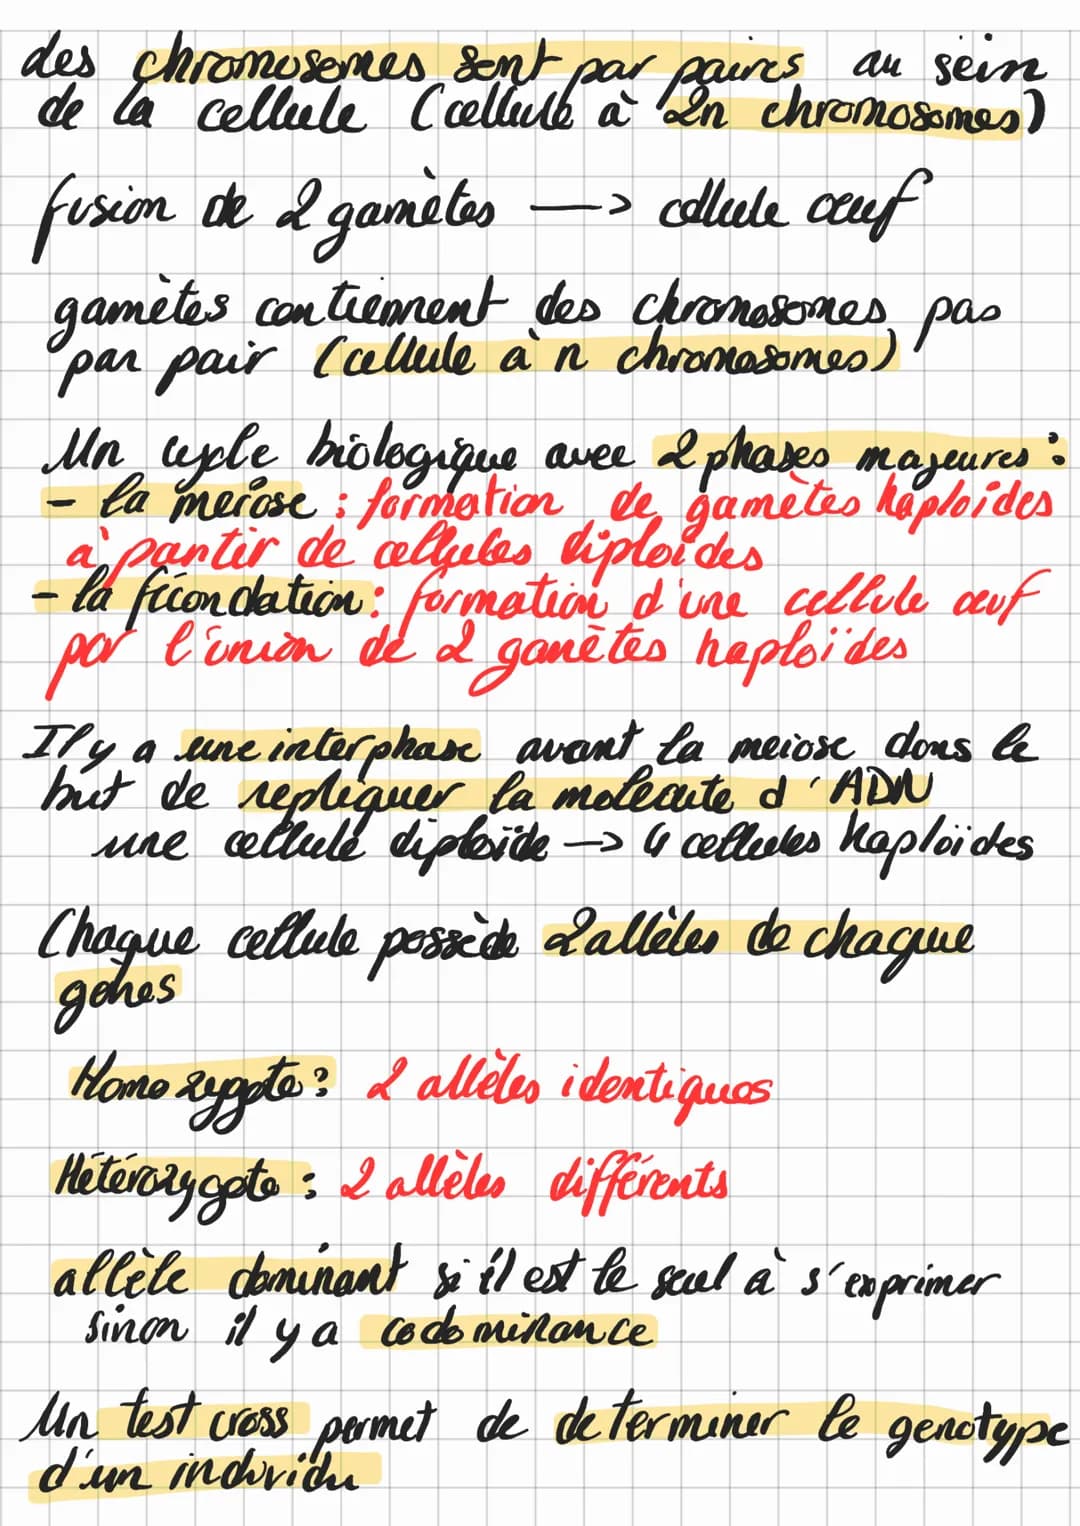 des chromosomes sont par paires au sein
de la cellule (cellule à 2n chromosomes)
fusion de 2 gamètes —> cellule œuf
gamètes contiennent des chromosomes pas
par pair (cellule à n chromosomes)
Un cycle biologique avec 2 phases majeures :
- la meïose : formation de gamètes haploïdes
à partir de cellules diploïdes
- la fécondation : formation d'une cellule œuf
par l'union de 2 gamètes haploïdes
Il y a une interphase avant la meiose dans le
but de repliquer la molecule d'ADN
une cellule diploïde —> 4 cellules haploïdes
Chaque cellule possède 2 allèles de chaque
gènes
Homozygote : 2 allèles identiques
Hétérozygote : 2 allèles différents
allèle dominant si il est le seul à s'exprimer
sinon il y a codominance
Un test cross permet de determiner le genotype
d'un individu